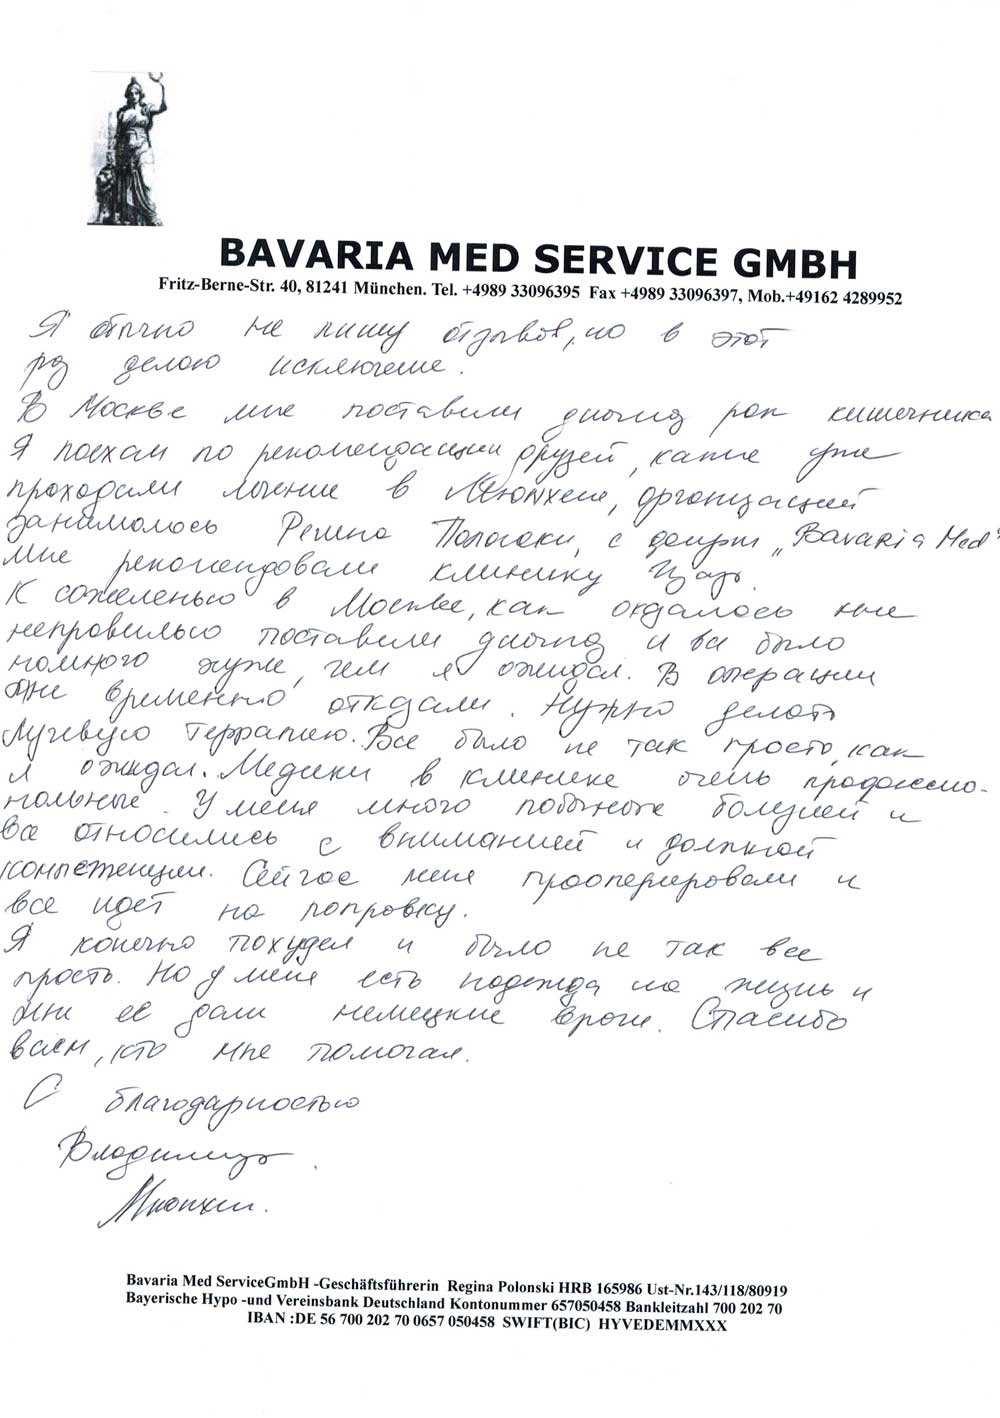 BAVARIA MED SERVICE GMBH
Fritz-Berne-Str. 40, 81241 München. Tel. +4989 33096395 Fax +4989 33096397, Mob.+49162 4289952
Я обычно не пишу отзывов, но в этот
раз делаю исключение.
В Москве мне поставили диагноз рак кишечника
Я поехал по рекомендации друзей, какие уже
проходили лечение в Мюнхене, организацией
занималось Регина Полонски, с фирмы „Bavaria Med"
мне рекомендовали клинику Изар.
К сожеленью в Москве, как оказалось мне
неправильно поставили диагноз и все было
намного хуже, чем я ожидал. В операции
мне временно отказали. Нужно делать
Лучевую Террапию. Все было не так просто, как
я ожидал. Медики в клинике очень профессио-
нальные. У меня много побочных болезней и
все относились с вниманией и должной
компетенции. Сейчас меня прооперировали и
все идет на поправку.
Я конечно похудел и было не так все
просто. Но у меня есть надежда на жизнь и
мне её дали немецкие врачи. Спасибо
всем, кто мне помогал.
С благодарностью
Владимир.
Мюнхен.
Bavaria Med ServiceGmbH -Geschäftsführerin Regina Polonski HRB 165986 Ust-Nr.143/118/80919
Bayerische Hypo -und Vereinsbank Deutschland Kontonummer 657050458 Bankleitzahl 700 202 70
IBAN :DE 56 700 202 70 0657 050458 SWIFT(BIC) HYVEDEMMXXX